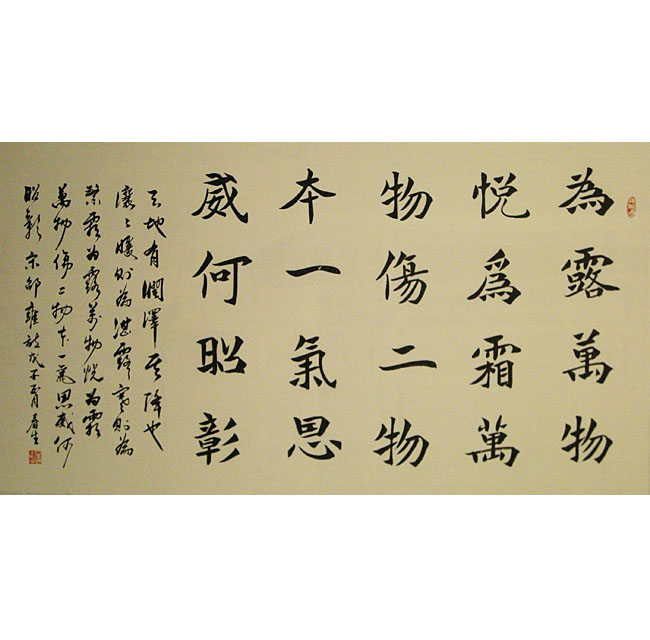 為露萬物
悅爲霜萬
物傷二物
本一氣恩
威何昭彰
天地有潤澤其降也
瀼々暖則為湛露寒則為
繁霜为露萬物悅为霜
萬物傷二物本一氣恩威何
昭彰 宋邵雍詩戊子 月春生